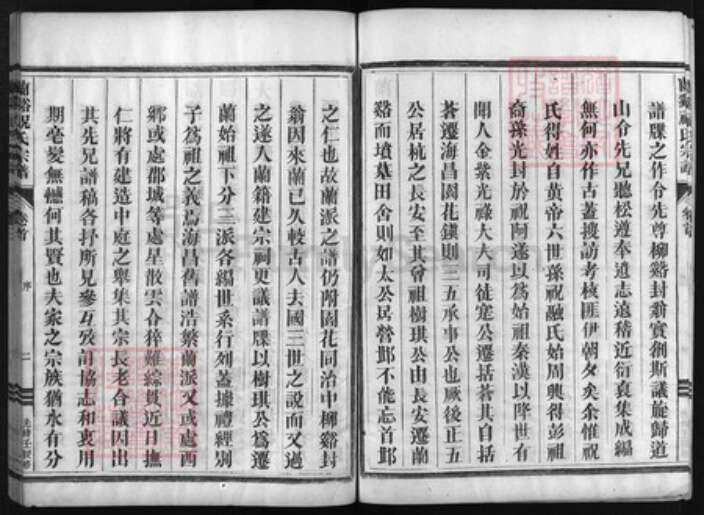 譜牒之作合先尊柳谿封翁實創斯議旋歸道
山合先兄聽松遵奉遺志遠稽近衍裒集成編
無何亦作古蓋搜訪考核匪伊朝夕矣余惟祝
氏得姓自黃帝六世孫祝融氏始周興得彭祖
裔孫光封於祝阿遂以為始祖秦漢以降世有
聞人金紫光祿大夫司徒寔公遷括蒼其自括
蒼遷海昌園花鎮則三五承事公也厥後正五
公居杭之長安至其曾祖樹琪公由長安遷蘭
谿而墳墓田舍則如太公居營邱不能忘首邱
之仁也故蘭派之譜仍附園花同治中柳谿封
翁因來蘭已久較古人去國三世之說而又過
之遂入蘭籍建宗祠更議譜牒以樹琪公為遷
蘭始祖下分三派各編世系行列蓋據禮經別
子為祖之義焉海昌舊譜浩繁蘭派又或處西
鄉或處郡城等處星散雲合猝難綜貫近日撫
仁將有建造中庭之舉集其宗長老合議因出
其先兄譜稿各抒所見參互攷訂協志和衷用
期毫髮無憾何其賢也夫家之宗族猶水有分
蘭谿祝氏宗譜
卷首
序
二